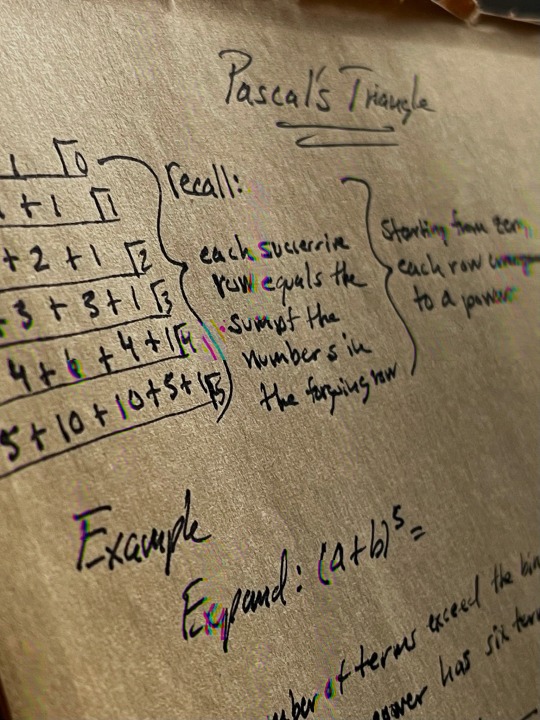 Pascal's Triangle
1 0
+ 1 1
+ 2 + 1 2
3 + 3 + 1 3
4 + 6 + 4 + 1 4
5 + 10 + 10 + 5 + 1 5
recall:
each successive
row equals the
sum of the
numbers in
the forgoing row
Starting from zero,
each row
to a power
Example
Expand: (a+b)⁵ =
of terms exceed the
answer has six